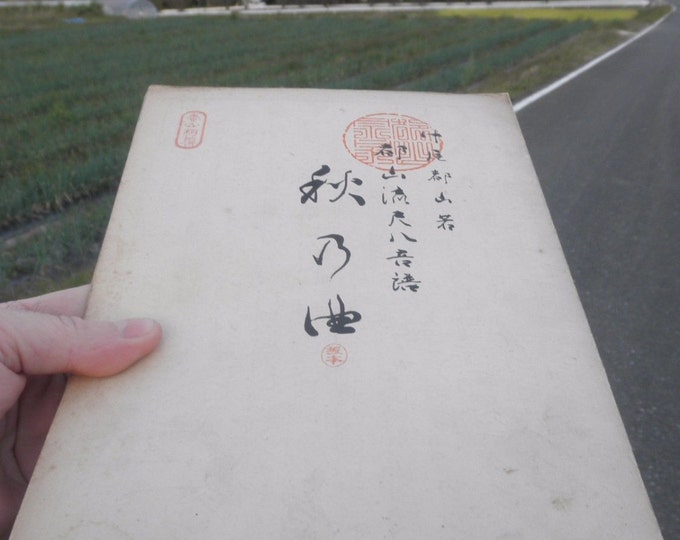 中尾都山著
都山流尺八音譜
秋乃曲